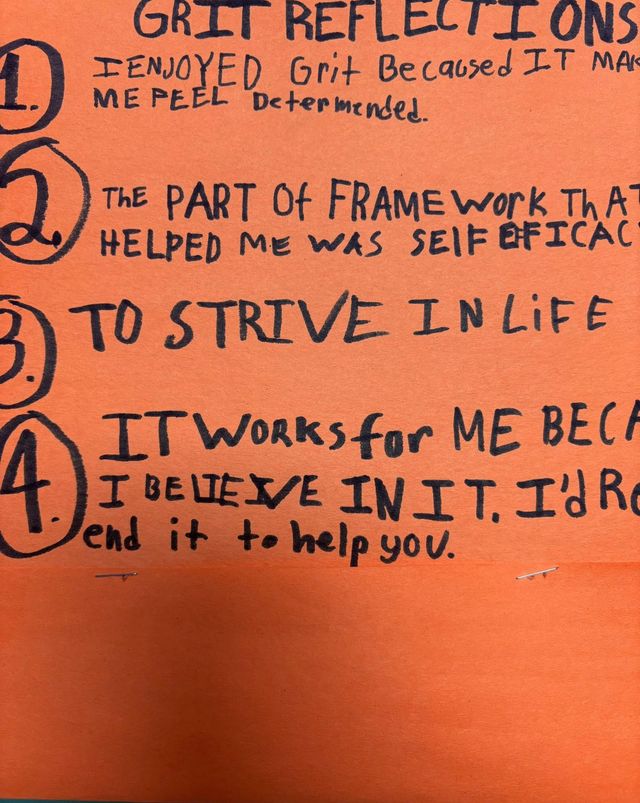 GRIT REFLECTIONS
1. I ENJOYED Grit Becaused IT MAK
ME PEEL Determended.
2. The PART Of FRAMEWORK ThAT
HELPED ME WAS SElF EFICAC
3. TO STRIVE IN LiFE
4. IT WORKS for ME BECA
I BELIEVE IN IT. I'd Re
end it to help you.